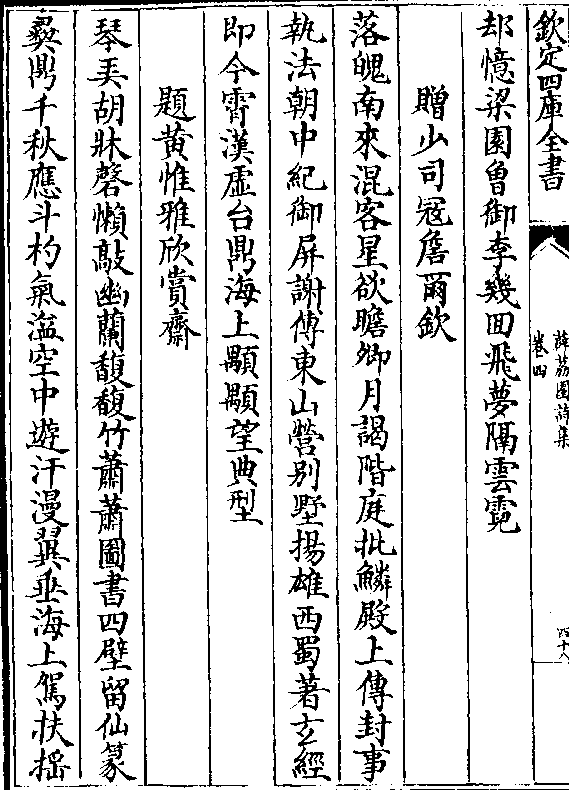 欽定四庫全書
薜荔園詩集
卷四
四十八
却憶梁園曾御李幾回飛夢隔雲霓
贈少司寇詹爾欽
落魄南來混客星欲瞻卿月謁階庭批鱗殿上傳封事
執法朝中紀御屏謝傅東山營别墅揚雄西蜀著玄經
即今霄漢虚台鼎海上顒顒望典型
題黄惟雅欣賞齋
琴美胡牀磬懶敲幽蘭馥馥竹蕭蕭圖書四壁留仙篆
彞鼎千秋應斗杓氣溢空中遊汗漫翼垂海上駕扶搖